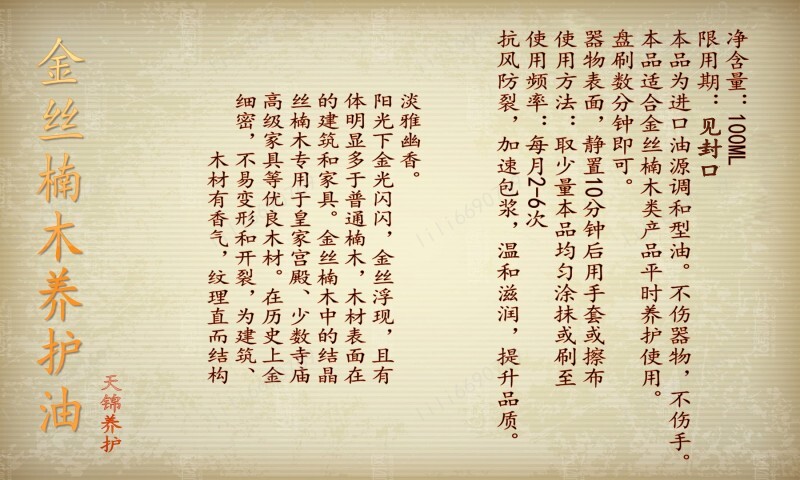 金丝楠木养护油
天锦养护
木材有香气，纹理直而结构
细密，不易变形和开裂，为建筑、
高级家具等优良木材。在历史上金
丝楠木专用于皇家宫殿、少数寺庙
的建筑和家具。金丝楠木中的结晶
体明显多于普通楠木，木材表面在
阳光下金光闪闪，金丝浮现，且有
淡雅幽香。
抗风防裂，加速包浆，温和滋润，提升品质。
使用频率：每月2-6次
使用方法：取少量本品均匀涂抹或刷至
器物表面，静置10分钟后用手套或擦布
盘刷数分钟即可。
本品适合金丝楠木类产品平时养护使用。
本品为进口油源调和型油。不伤器物，不伤手。
限用期：见封口
净含量：100ML